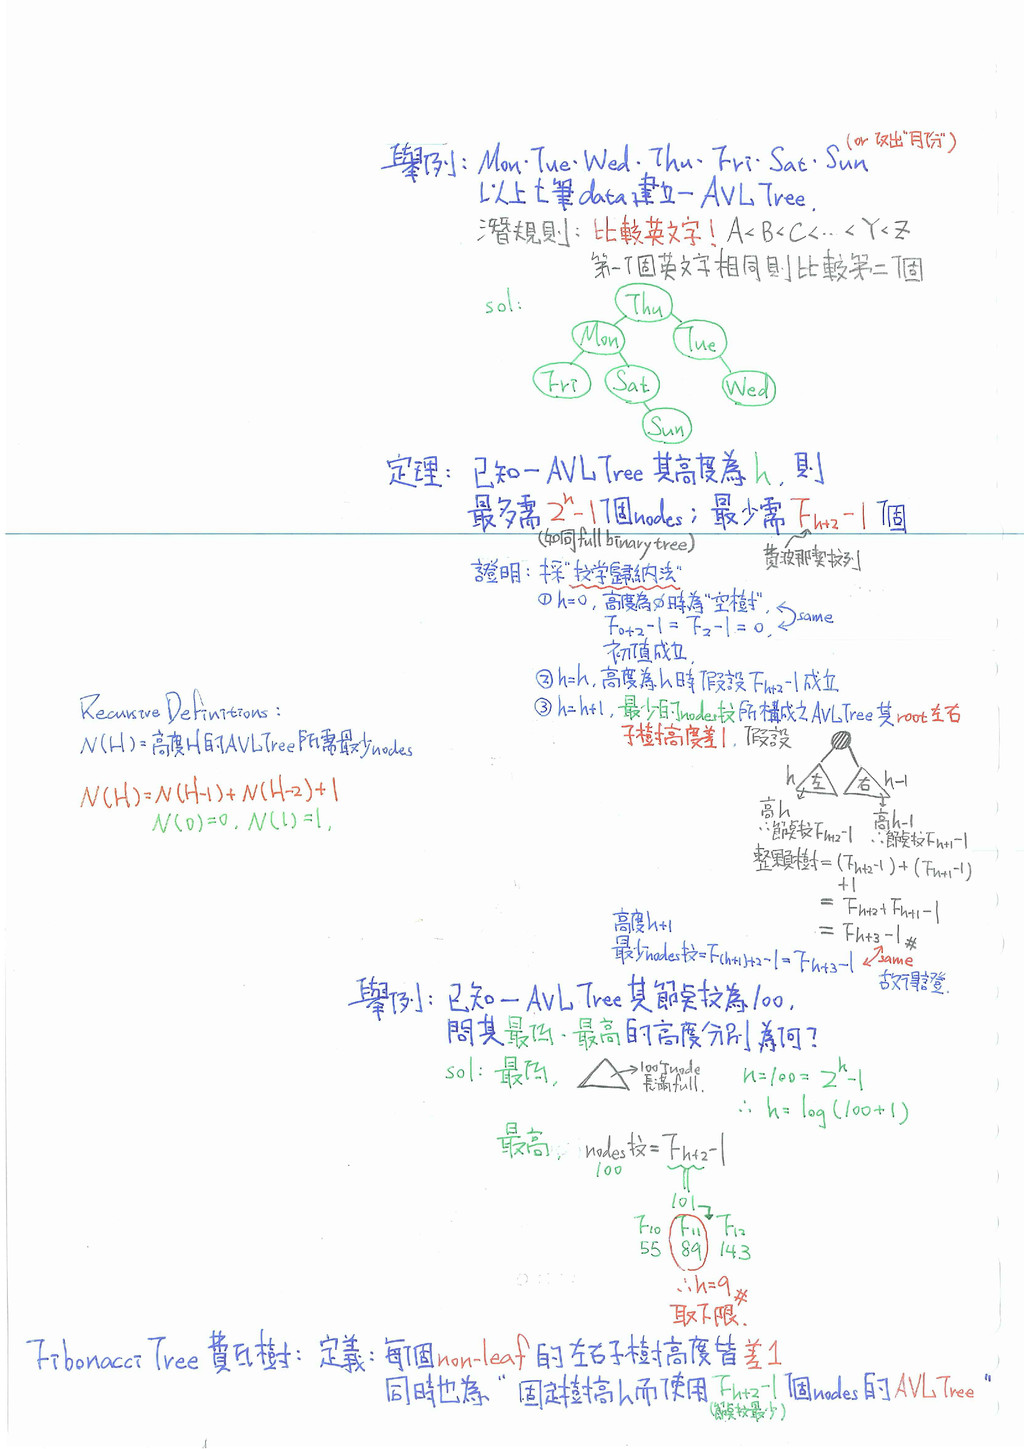 舉例：Mon．Tue．Wed．Thu．Fri．Sat．Sun (or 改出"月份")
以上七筆data建立一AVL Tree.
潛規則：比較英文字！A<B<C<…<Y<Z
第一個英文字相同則比較第二個
sol:
Thu
Mon Tue
Fri Sat Wed
Sun
定理：已知一AVL Tree其高度為h，則
最多需2^h-1個nodes；最少需F_{h+2}-1個
(如同full binary tree)
費波那契數列
證明：採"數学歸納法"
①h=0，高度為∅時為"空樹"，
F_{0+2}-1=F_2-1=0，
same
初值成立.
②h=h，高度為h時假設F_{h+2}-1成立
③h=h+1，最少的nodes數所構成之AVL Tree其root左右
子樹高度差1，假設
h 左 右 h-1
高h 高h-1
∴節點數F_{h+2}-1 ∴節點數F_{h+1}-1
整顆樹=(F_{h+2}-1)+(F_{h+1}-1)
+1
=F_{h+2}+F_{h+1}-1
=F_{h+3}-1 #
高度h+1
最少nodes數=F_{(h+1)+2}-1=F_{h+3}-1
same
故得證.
Recursive Definitions:
N(H)=高度H的AVL Tree所需最少nodes
N(H)=N(H-1)+N(H-2)+1
N(0)=0, N(1)=1,
舉例：已知一AVL Tree其節點數為100，
問其最低．最高的高度分別為何？
sol: 最低，
100個node
長滿full.
n=100=2^h-1
∴h=log(100+1)
最高，
nodes數=F_{h+2}-1
100
101
F_10 F_11 F_12
55 89 143
∴h=9 #
取下限.
Fibonacci Tree 費氏樹：定義：每個non-leaf的左右子樹高度皆差1
同時也為"固定樹高h而使用F_{h+2}-1個nodes的AVL Tree"
(節點數最少)